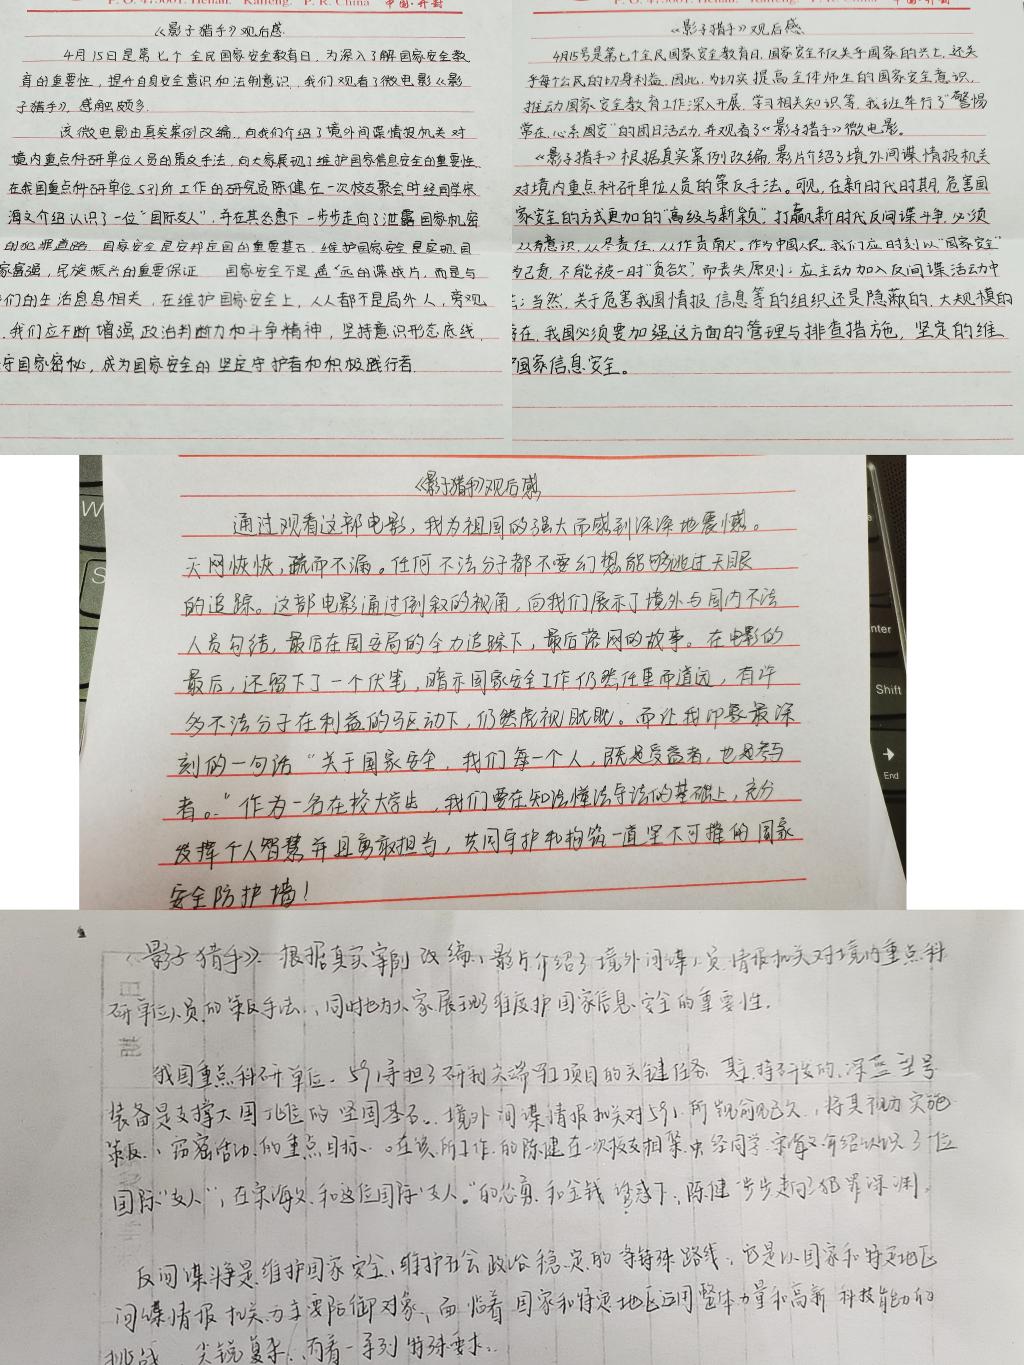 P. O. 475001. Henan. Kaifeng. P. R. China 中国·开封
《影子猎手》观后感
4月15日是第七个全民国家安全教育日，为深入了解国家安全教
育的重要性，提升自身安全意识和法制意识，我们观看了微电影《影
子猎手》，感触颇多.
该微电影由真实案例改编，向我们介绍了境外间谍情报机关对
境内重点科研单位人员的策反手法，向大家展现了维护国家信息安全的重要性.
在我国重点科研单位591所工作的研究员陈健在一次校友聚会时经同学宋
海文介绍认识了一位"国际友人"，并在其怂恿下一步步走向了泄露国家机密
的犯罪道路. 国家安全是安邦定国的重要基石，维护国家安全是实现国
家富强，民族振兴的重要保证. 国家安全不是遥远的谍战片，而是与
们的生活息息相关，在维护国家安全上，人人都不是局外人，旁观
. 我们应不断增强政治判断力和斗争精神，坚持意识形态底线，
守国家密秘，成为国家安全的坚定守护者和积极践行者.
P. O. 475001. Henan. Kaifeng. P. R. China 中国·开封
《影子猎手》观后感
4月15号是第七个全民国家安全教育日，国家安全不仅关乎国家的兴亡，还关
乎每个公民的切身利益. 因此，为切实提高全体师生的国家安全意识，
推动国家安全教育工作深入开展，学习相关知识等，我班举行了"警惕
常在，心系国安"的团日活动，并观看了《影子猎手》微电影。
《影子猎手》根据真实案例改编，影片介绍了境外间谍情报机关
对境内重点科研单位人员的策反手法。可见，在新时代时期，危害国
家安全的方式更加的"高级与新颖". 打赢新时代反间谍斗争，必须
从有意识，从尽责任，从作贡献。作为中国人民，我们应时刻以"国家安全"
为己责，不能被一时"贪欲"而丧失原则；应主动加入反间谍活动中
；当然，关于危害我国情报、信息等的组织还是隐蔽的、大规模的
存在，我国必须要加强这方面的管理与排查措施，坚定的维
护国家信息安全。
《影子猎手》观后感
通过观看这部电影，我为祖国的强大而感到深深地震憾。
天网恢恢，疏而不漏。任何不法分子都不要幻想能够逃过天眼
的追踪。这部电影通过倒叙的视角，向我们展示了境外与国内不法
人员勾结，最后在国安局的全力追踪下，最后落网的故事。在电影的
最后，还留下了一个伏笔，暗示国家安全工作仍然任重而道远，有许
多不法分子在利益的驱动下，仍然虎视眈眈。而让我印象最深
刻的一句话"关于国家安全，我们每一个人，既是受益者，也是参与
者。"作为一名在校大学生，我们要在知法懂法守法的基础上，充分
发挥个人智慧并且勇敢担当，共同守护和构筑一道坚不可摧的国家
安全防护墙！
《影子猎手》根据真实案例改编，影片介绍了境外间谍人员情报机关对境内重点科
研单位人员的策反手法，同时也为大家展现了维度护国家信息安全的重要性.
我国重点科研单位. 591承担了研制尖端军工项目的关键任务 其主持研发的深蓝型号
装备是支撑大国地区的坚固基石。境外间谍情报机关对591所觊觎已久，将其视为实施
策反、窃密活动的重点目标。在该所工作的陈健在一次校友相聚中经同学宋海文介绍认识了一位
国际"友人"，在宋海文和这位国际"友人"的怂恿和金钱诱惑下，陈健一步步走向了犯罪深渊。
反间谍斗争是维护国家安全、维护社会政治稳定的特殊路线，它是以国家和特定地区
间谍情报机关为主要防御对象，面临着国家和特定地区运用整体力量和高新科技能力的
挑战，尖锐复杂，有着一系列特殊要求.